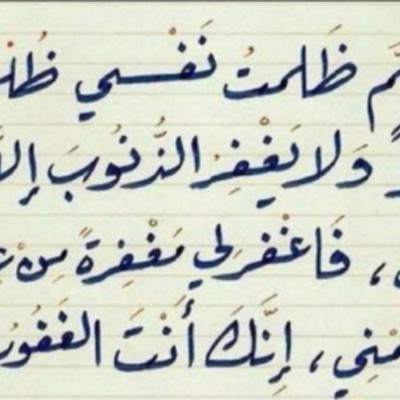 ظَلمتُ نَفْسي
وَلا يَغْفِرُ الذُّنُوبَ إلاَّ
، فَاغْفرلي مَغْفِرةً مِنْ
ـمْنِي ، إِنَّكَ أَنْتَ الغَفُورُ